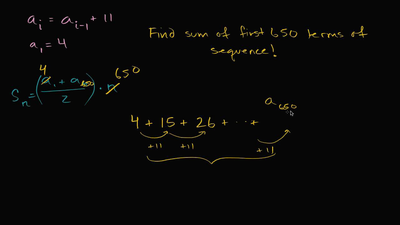 a_i = a_{i-1} + 11
a_1 = 4
Find sum of first 650 terms of
sequence!
4 650
S_n = ((a_1 + a_650)/2) · n
a_650
4 + 15 + 26 + ··· +
+11 +11 +11